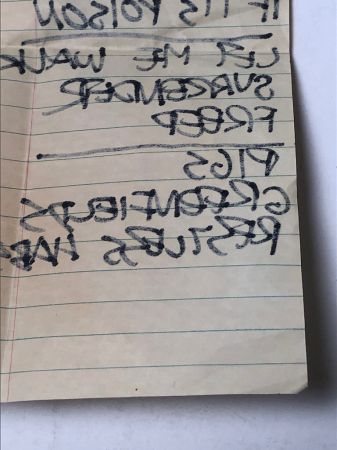 IF ITS POISON
LET ME WALK
SURRENDER
FREED
PIGS
GREENFIELDS
RESTLESS